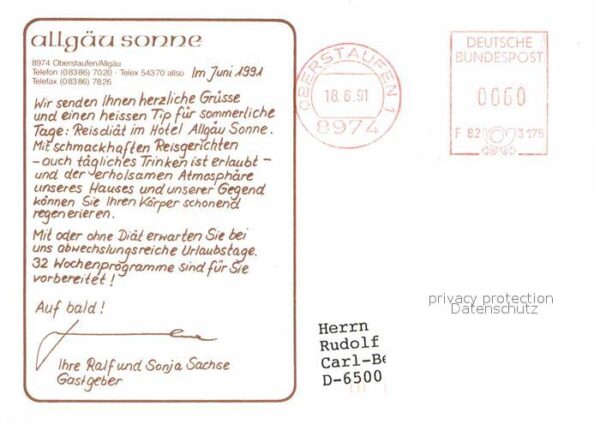 allgäu sonne
8974 Oberstaufen/Allgäu
Telefon (08386) 7020 · Telex 54370 allso
Telefax (08386) 7826
Im Juni 1991
Wir senden Ihnen herzliche Grüsse
und einen heissen Tip für sommerliche
Tage: Reisdiät im Hotel Allgäu Sonne.
Mit schmackhaften Reisgerichten
- auch tägliches Trinken ist erlaubt -
und der erholsamen Atmosphäre
unseres Hauses und unserer Gegend
können Sie Ihren Körper schonend
regenerieren.
Mit oder ohne Diät erwarten Sie bei
uns abwechslungsreiche Urlaubstage.
32 Wochenprogramme sind für Sie
vorbereitet!
Auf bald!
Ihre Ralf und Sonja Sachse
Gastgeber
OBERSTAUFEN 1
18.6.91
8974
DEUTSCHE
BUNDESPOST
0060
F 82 3175
privacy protection
Datenschutz
Herrn
Rudolf
Carl-Be
D-6500